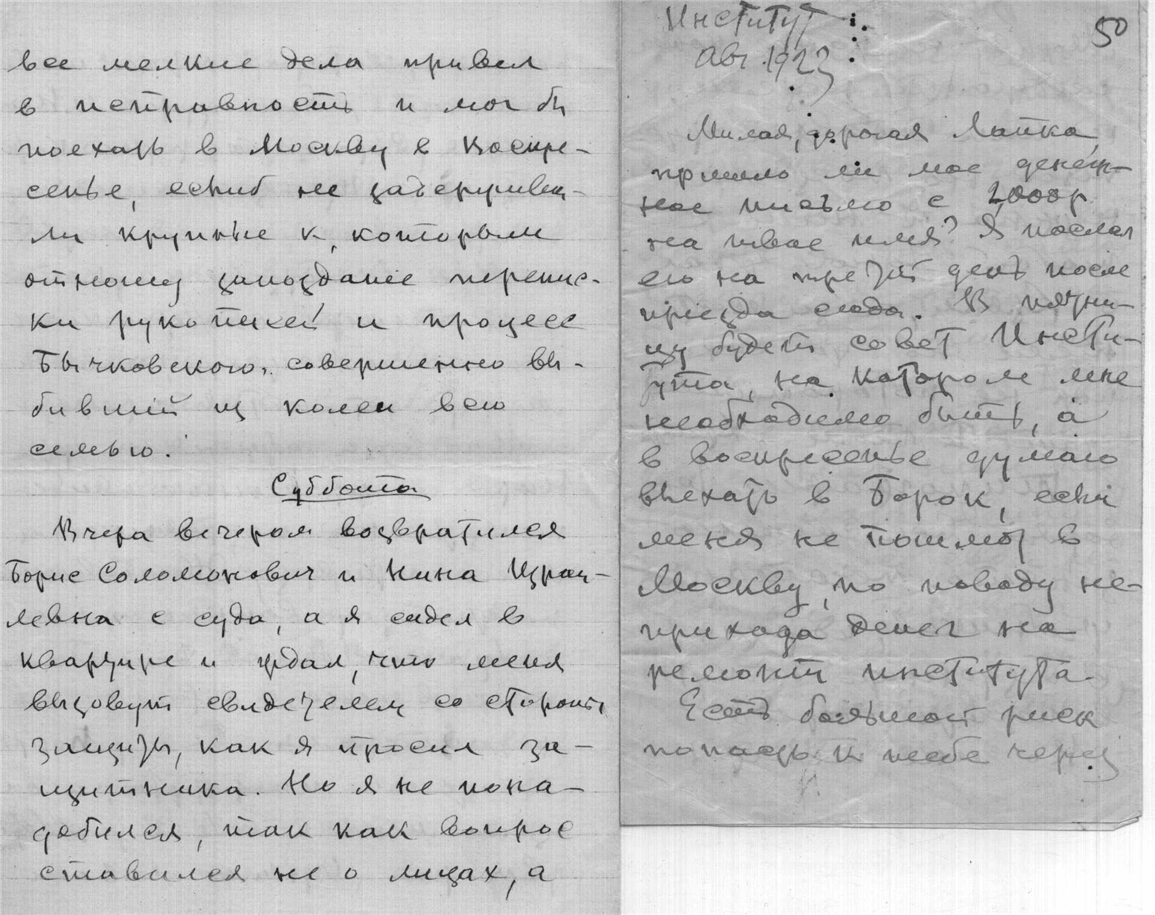 все мелкие дела привел
в исправность и мог бы
поехать в Москву в Воскре-
сенье, еслиб не задерживa-
ли крупные к, которым
отношу запоздание перепис-
ки рукописей и процесс
Бычковского, совершенно вы-
бивший из колеи всю
семью.
Суббота
Вчера вечером возвратился
Борис Соломонович и Нина Израи-
левна с суда, а я сидел в
квартире и ждал, что меня
вызовут свидетелем со стороны
защиты, как я просил за-
щитника. Но я не пона-
добился, так как вопрос
ставился не о лицах, а
50
Институт
Авг. 1923
Милая, дорогая Лапка
пришло ли мое денеж-
ное письмо с 2,000р
на твое имя? Я послал
его на третий день после
приезда сюда. В пятни-
цу будет совет Инсти-
тута, на котором мне
необходимо быть, а
в воскресенье думаю
выехать в Борок, если
меня не пошлют в
Москву, по поводу не-
прихода денег на
ремонт института.
Есть большой риск
попасть к тебе через